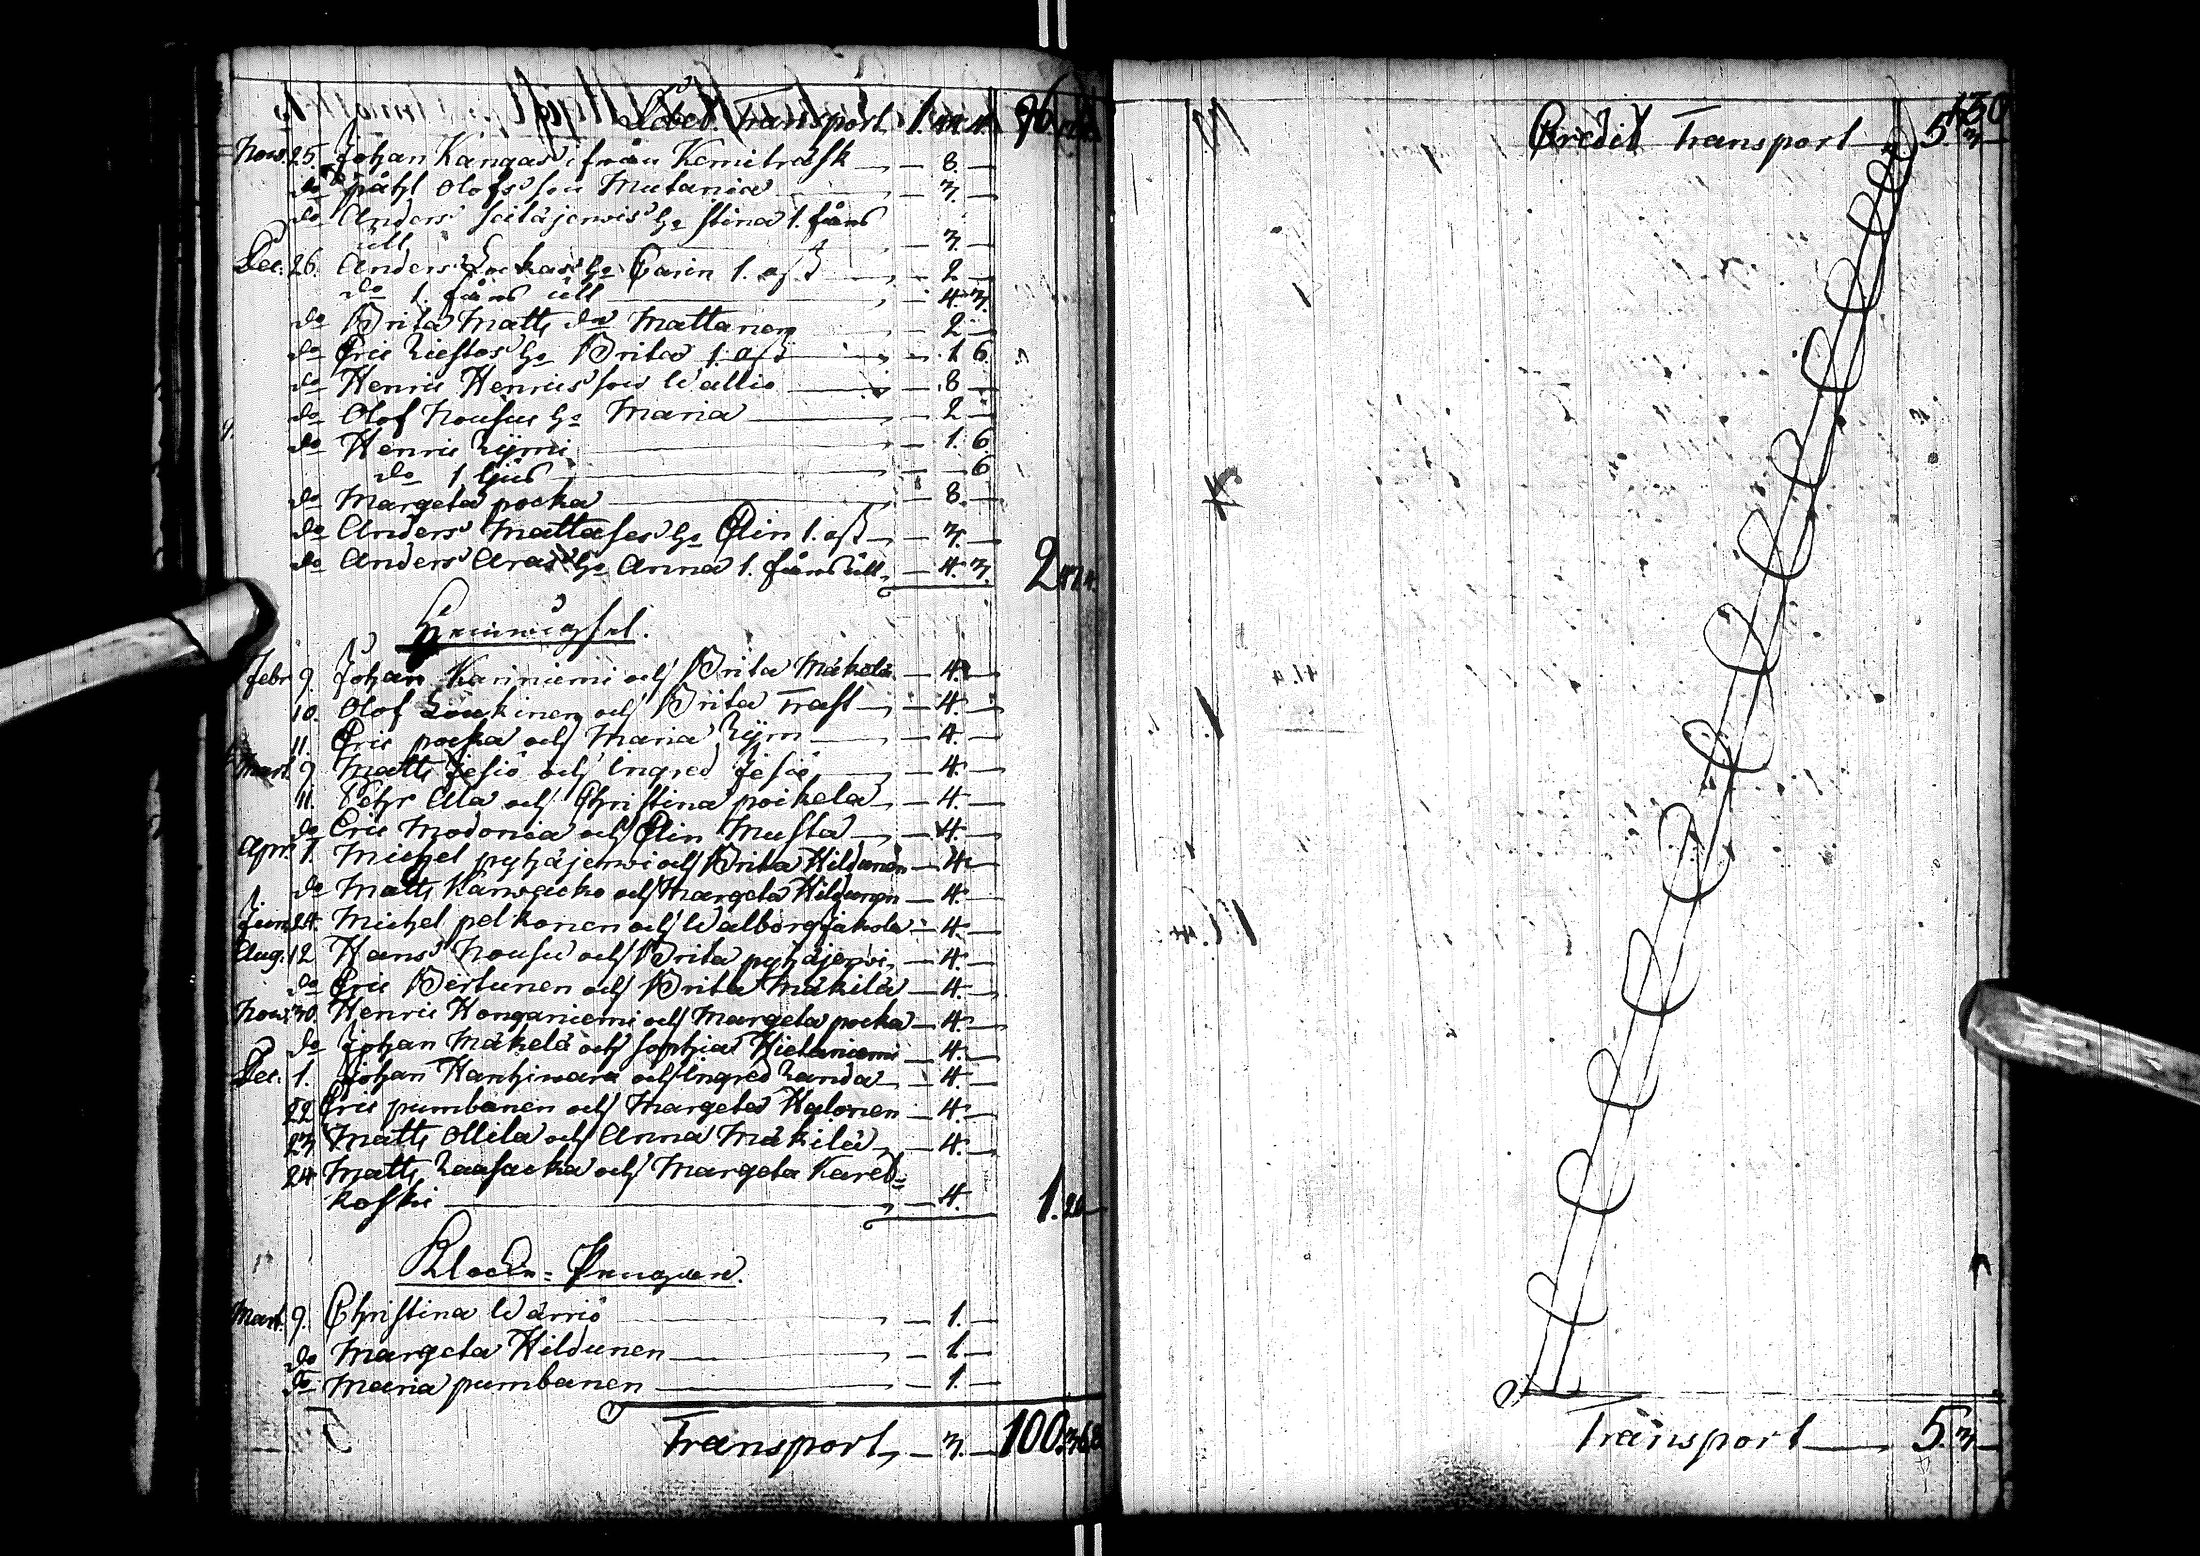 Debet Transport 1. 96
Nov. 25. Johan Kangas ifrån Kemiträsk — 8. —
do påhl Olofsson Mutania — 3. —
do Anders Seitäjerwis ho Stina 1. fårs
ull — 3. —
Dec. 26. Anders ho Carin 1. ost — 2 —
do 1. fårs ull — 4. 3.
do Brita Matts dr Mattanen — 2 —
do Eric Liestos ho Brita 1. ost — 1. 6.
do Henric Henricsson Wallio — 8 —
do Olof Nousus ho Maria — 2 —
do Henric Lijmi — 1. 6
do 1 ljus — 6
do Margeta pocka — 8. —
do Anders Mattases ho Elin 1. ost — 3. —
do Anders Aras ho Anna 1. fårs ull — 4. 3. 2
Febr. 9. Johan Kanniemi och Brita Mäkelä — 4. —
10. Olof Loukinen och Brita Trast — 4. —
11. Eric pocka och Maria Lijm — 4. —
Mart. 9. Matts Jesiö och Ingred Jesiö — 4. —
11. Pehr Ala och Christina poikela — 4. —
do Eric Modonia och Elin Musta — 4. —
Apr. 1. Michel pyhäjerwi och Brita Hildunen — 4 —
do Matts och Margeta Hildunen — 4. —
Jun. 24. Michel pelkonen och Walborg Jakola — 4. —
Aug. 12 Hans Nousu och Brita pyhäjerwi — 4. —
do Eric Bertunen och Brita Mäkilä — 4. —
Nov. 30. Henric Konganiemi och Margeta pocka — 4. —
do Johan Mäkelä och Sophia Hietaniemi — 4. —
Dec. 1. Johan Kanhiwara och Ingred Landa — 4. —
22 Eric pumbanen och Margeta Halonen — 4. —
23 Matts Ollila och Anna Mäkilä — 4. —
24 Matts Laasacka och Margeta Kared=
koski — 4. 1. 20
Klock-Pengar.
Mart. 9. Christina Wärriö — 1. —
do Margeta Hildunen — 1. —
do Maria pumbanen — 1. —
Transport — 3. — 100. 36. 8
130
Credit Transport 5. 3 —
Transport — 5. 3 —